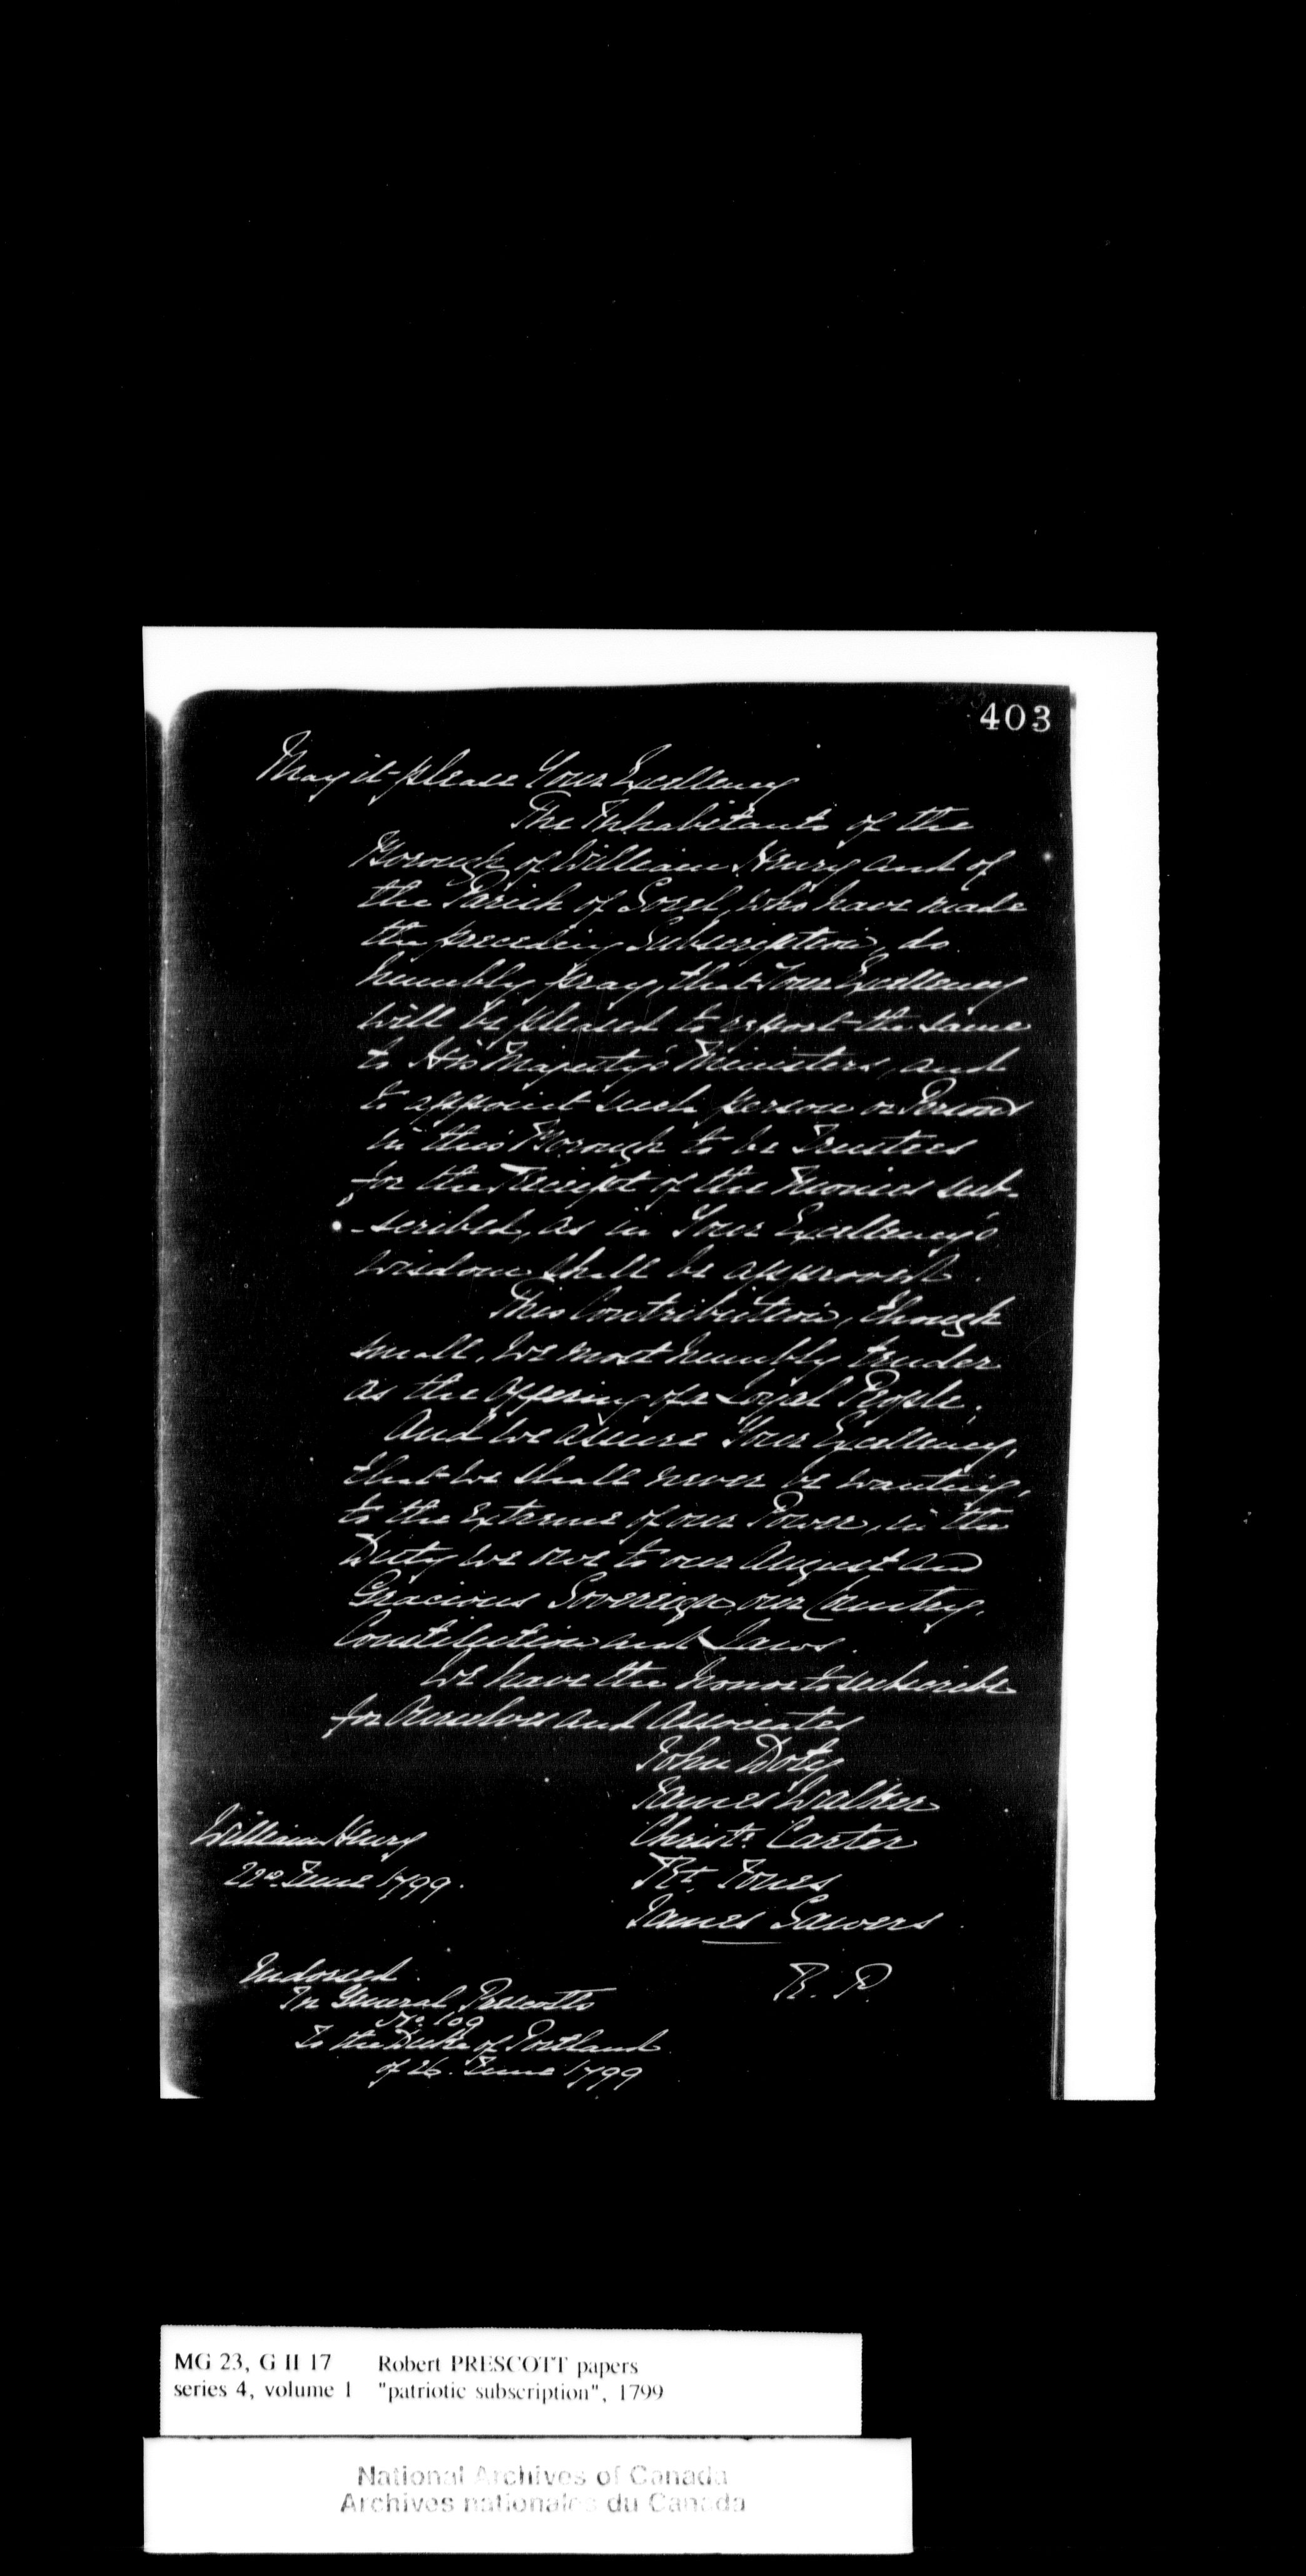 403
May it please Your Excellency
The Inhabitants of the
Borough of William Henry and of
the Parish of Sorel, who have made
the preceding Subscription, do
humbly pray, that Your Excellency
will be pleased to report the same
to His Majesty's Ministers, and
to appoint such person or Persons
in this Borough to be Trustees
for the Receipt of the Monies sub-
-scribed, as in Your Excellency's
wisdom shall be approved.
This Contribution, though
small, we most humbly tender
as the offering of a Loyal People;
And we assure Your Excellency,
that we shall never be wanting,
to the extreme of our Power, in the
Duty we owe to our August and
Gracious Sovereign, our Country,
Constitution and Laws.
We have the honor to subscribe
for Ourselves and Associates
John Doty
James Walker
Christr. Carter
Rt. Jones
James Sawers
William Henry
22d. June 1799.
R. P.
Endorsed
In General Prescott's
No. 109
To the Duke of Portland
of 26. June 1799
MG 23, G II 17 Robert PRESCOTT papers
series 4, volume 1 "patriotic subscription", 1799
National Archives of Canada
Archives nationales du Canada